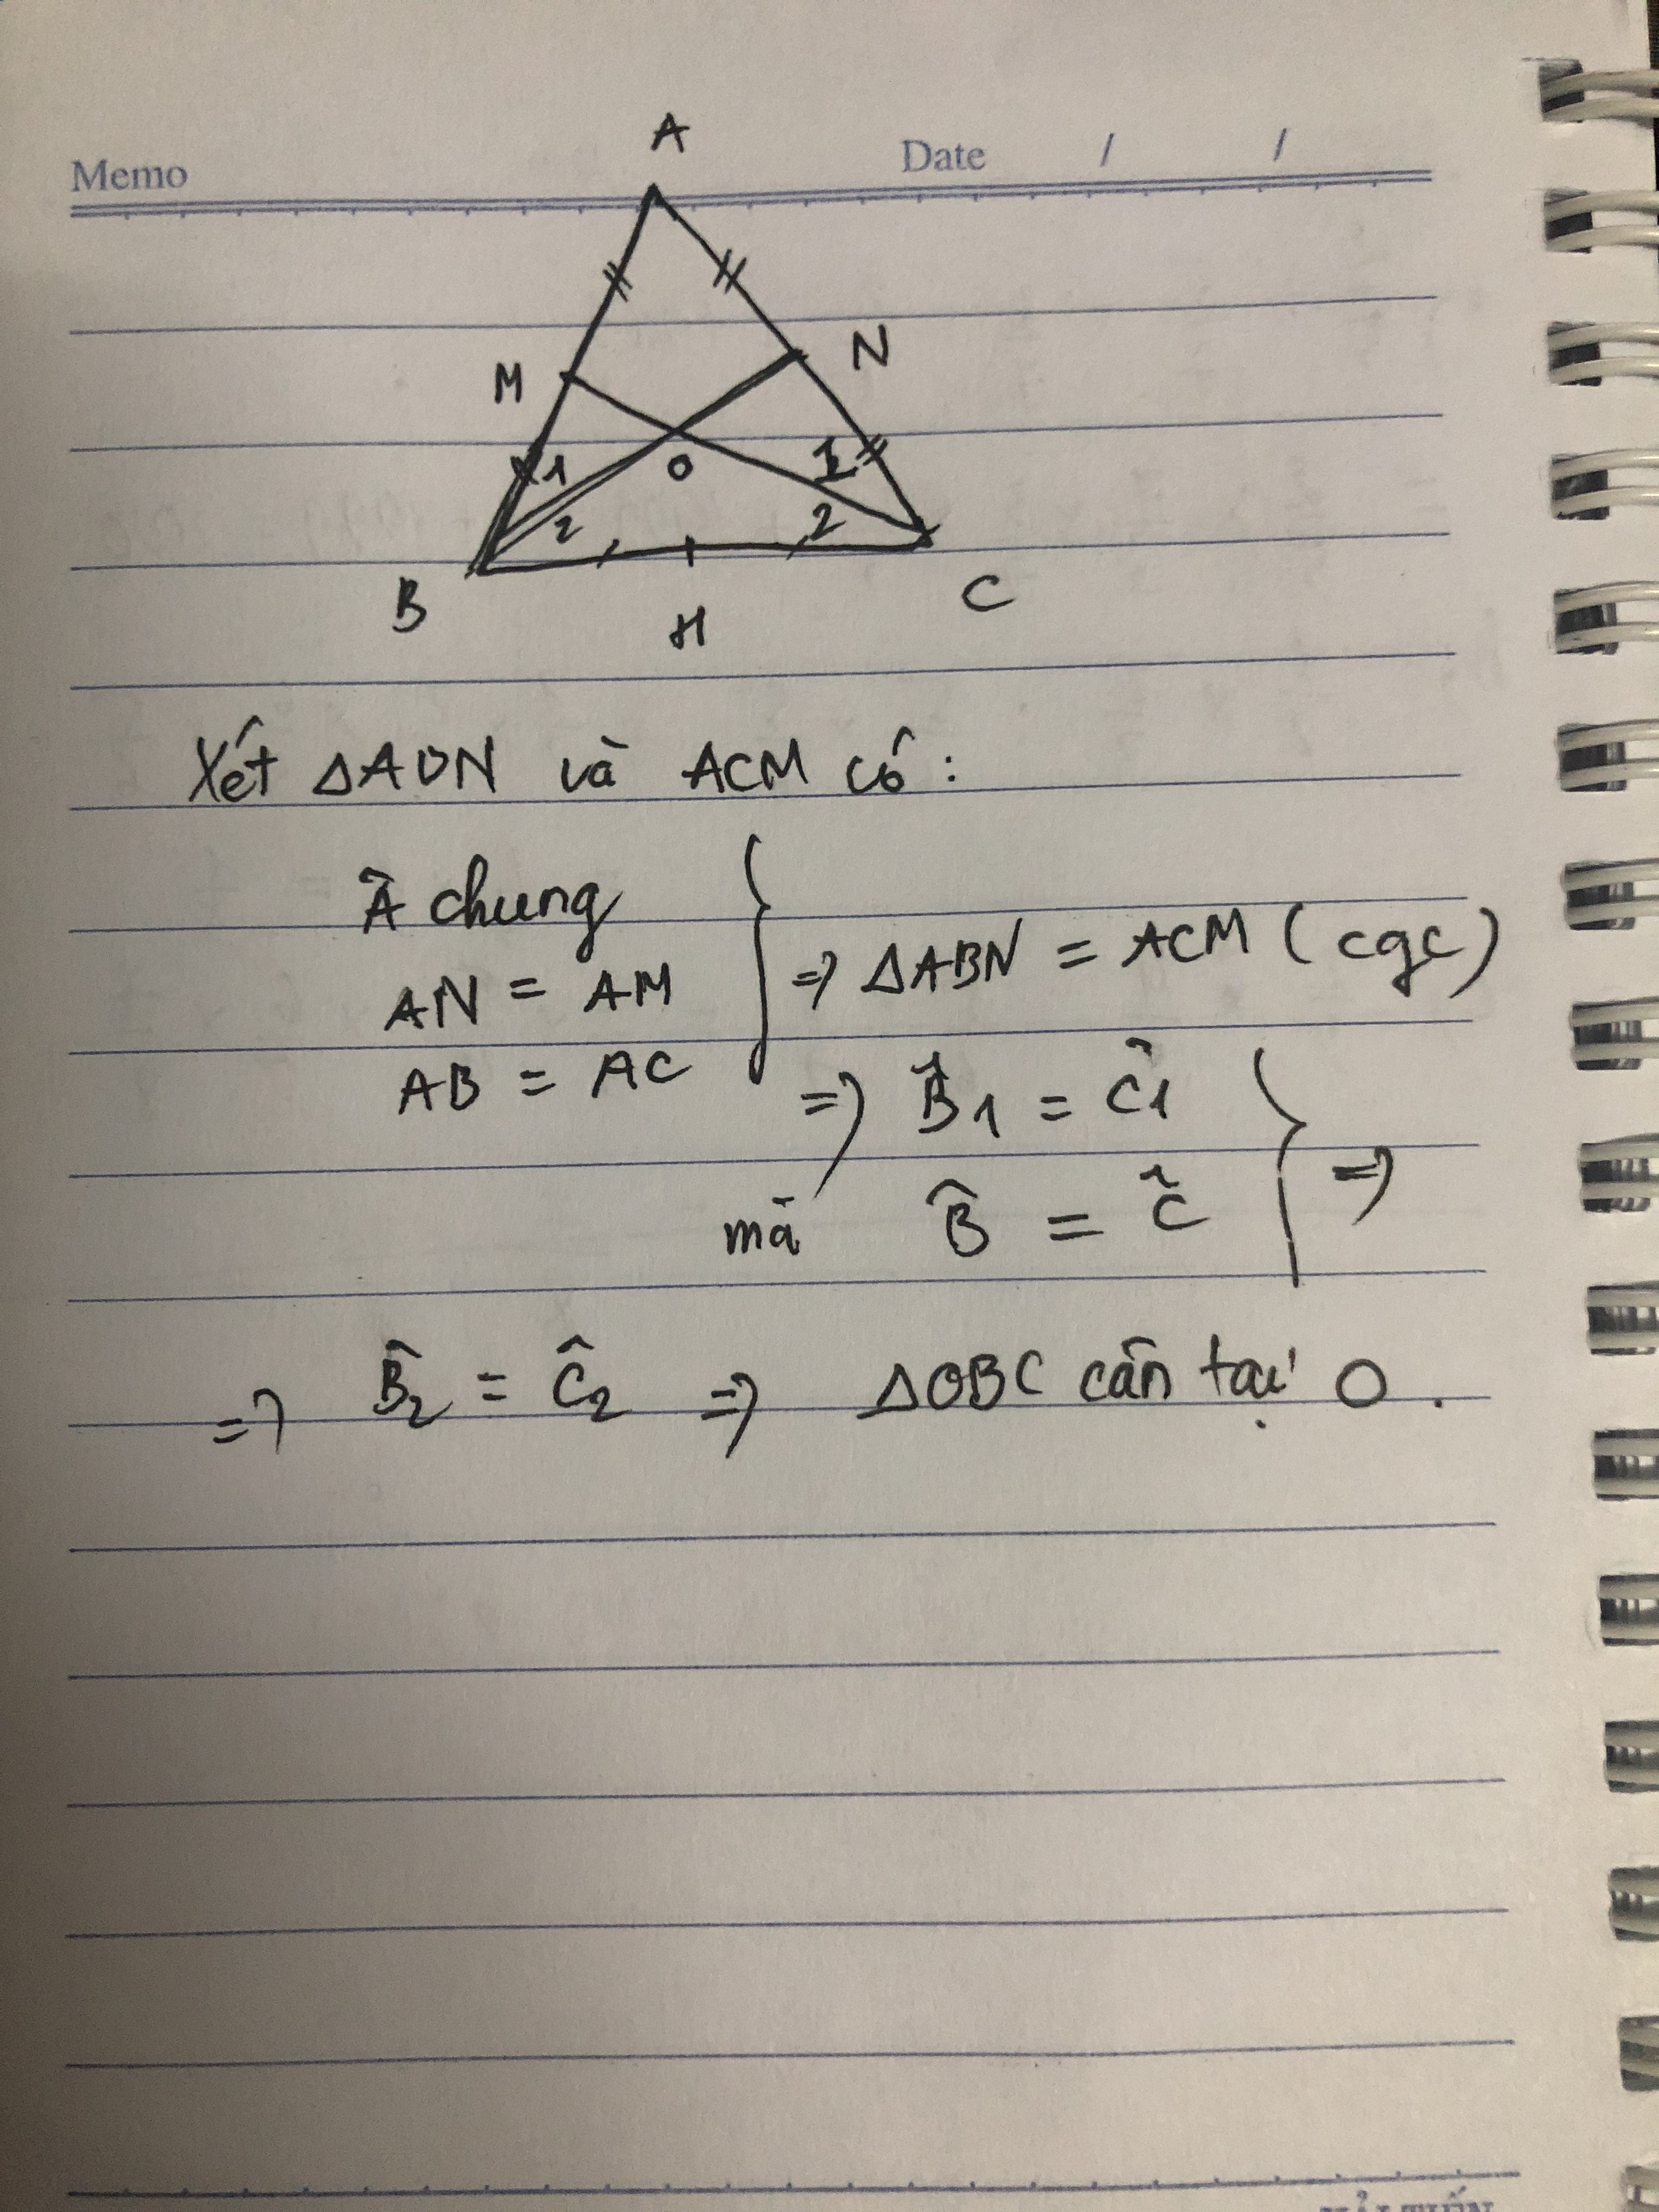 Memo
Date / /
A
M
N
1
O
1
2
2
B
H
C
Xét ΔABN và ACM có:
Â chung
AN = AM
AB = AC
=> ΔABN = ACM (cgc)
=> B̂1 = Ĉ1
mà B̂ = Ĉ =>
=> B̂2 = Ĉ2 => ΔOBC cân tại O.